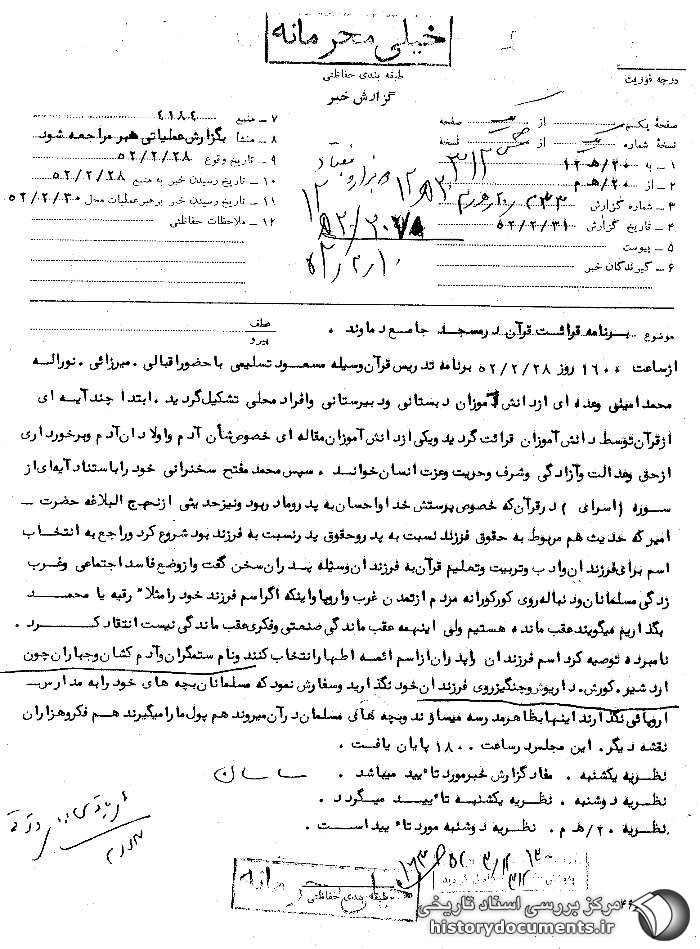 خیلی محرمانه
طبقه بندی حفاظتی
گزارش خبر
درجه فوریت
صفحه یکم از صفحه
نسخه شماره از نسخه
۱ – به ۲۰/هـ ۱۲
۲ – از ۲۰/هـ م
۳ – شماره گزارش
۴ – تاریخ گزارش ۵۲/۲/۳۱
۵ – پیوست
۶ – گیرندگان خبر
۷ – منبع ۴۱۸۴
۸ – منشأ بگزارش عملیاتی هبر مراجعه شود
۹ – تاریخ وقوع ۵۲/۲/۲۸
۱۰ – تاریخ رسیدن خبر به منبع ۵۲/۲/۲۸
۱۱ – تاریخ رسیدن خبر برهبر عملیات محل ۵۲/۲/۳۰
۱۲ – ملاحظات حفاظتی
موضوع برنامه قرائت قرآن در مسجد جامع دماوند .
عطف
پیرو
از ساعت ۱۶۰۰ روز ۵۲/۲/۲۸ برنامه تدریس قرآن وسیله مسعود تسلیمی با حضور اقبالی . میرزائی . نوراله
محمد امینی وعده ای از دانش آموزان دبستانی ودبیرستانی وافراد محلی تشکیل گردید . ابتدا چند آیه ای
از قرآن توسط دانش آموزان قرائت گردید ویکی از دانش آموزان مقاله ای خصوص شأن آدم واولادان آدم وبرخورداری
از حق وعدالت وآزادگی وشرف وحریت وعزت انسان خواند . سپس محمد مفتح سخنرانی خود را باستناد آیه ای از
سوره (اسرای) در قرآن که خصوص پرستش خدا واحسان به پدر ومادر بود ونیز حدیثی از نهج البلاغه حضرت –
امیر که حدیث هم مربوط به حقوق فرزند نسبت به پدر وحقوق پدر نسبت به فرزند بود شروع کرد وراجع به انتخاب
اسم برای فرزندان وادب وتربیت وتعلیم قرآن به فرزندان وسیله پدران سخن گفت واز وضع فاسد اجتماعی وغرب
زدگی مسلمانان ودنباله روی کورکورانه مردم از تمدن غرب واروپا واینکه اگر اسم فرزند خود را مثلاً رقیه یا محمد
بگذاریم میگویند عقب مانده هستیم ولی اینهمه عقب ماندگی صنعتی وفکری عقب ماندگی نیست انتقاد کرد .
نامبرده توصیه کرد اسم فرزندان را پدران از اسم ائمه اطهار انتخاب کنند ونام ستمگران وآدم کشان وجباران چون
اردشیر . کورش . داریوش وچنگیز روی فرزندان خود نگذارید وسفارش نمود که مسلمانان بچه های خود را به مدارس
اروپائی نگذارند اینها بظاهر مدرسه میسازند وبچه های مسلمان در آن میروند هم پول ما را میگیرند هم فکر وهزاران
نقشه دیگر . این مجلس در ساعت ۱۸۰۰ پایان یافت .
نظریه یکشنبه . مفاد گزارش خبر مورد تأیید میباشد . ساسان
نظریه دوشنبه . نظریه یکشنبه تأیید میگردد .
نظریه ۲۰/هـ م . نظریه دوشنبه مورد تأیید است .
خیلی محرمانه
طبقه بندی حفاظتی
مرکز بررسی اسناد تاریخی
historydocuments.ir